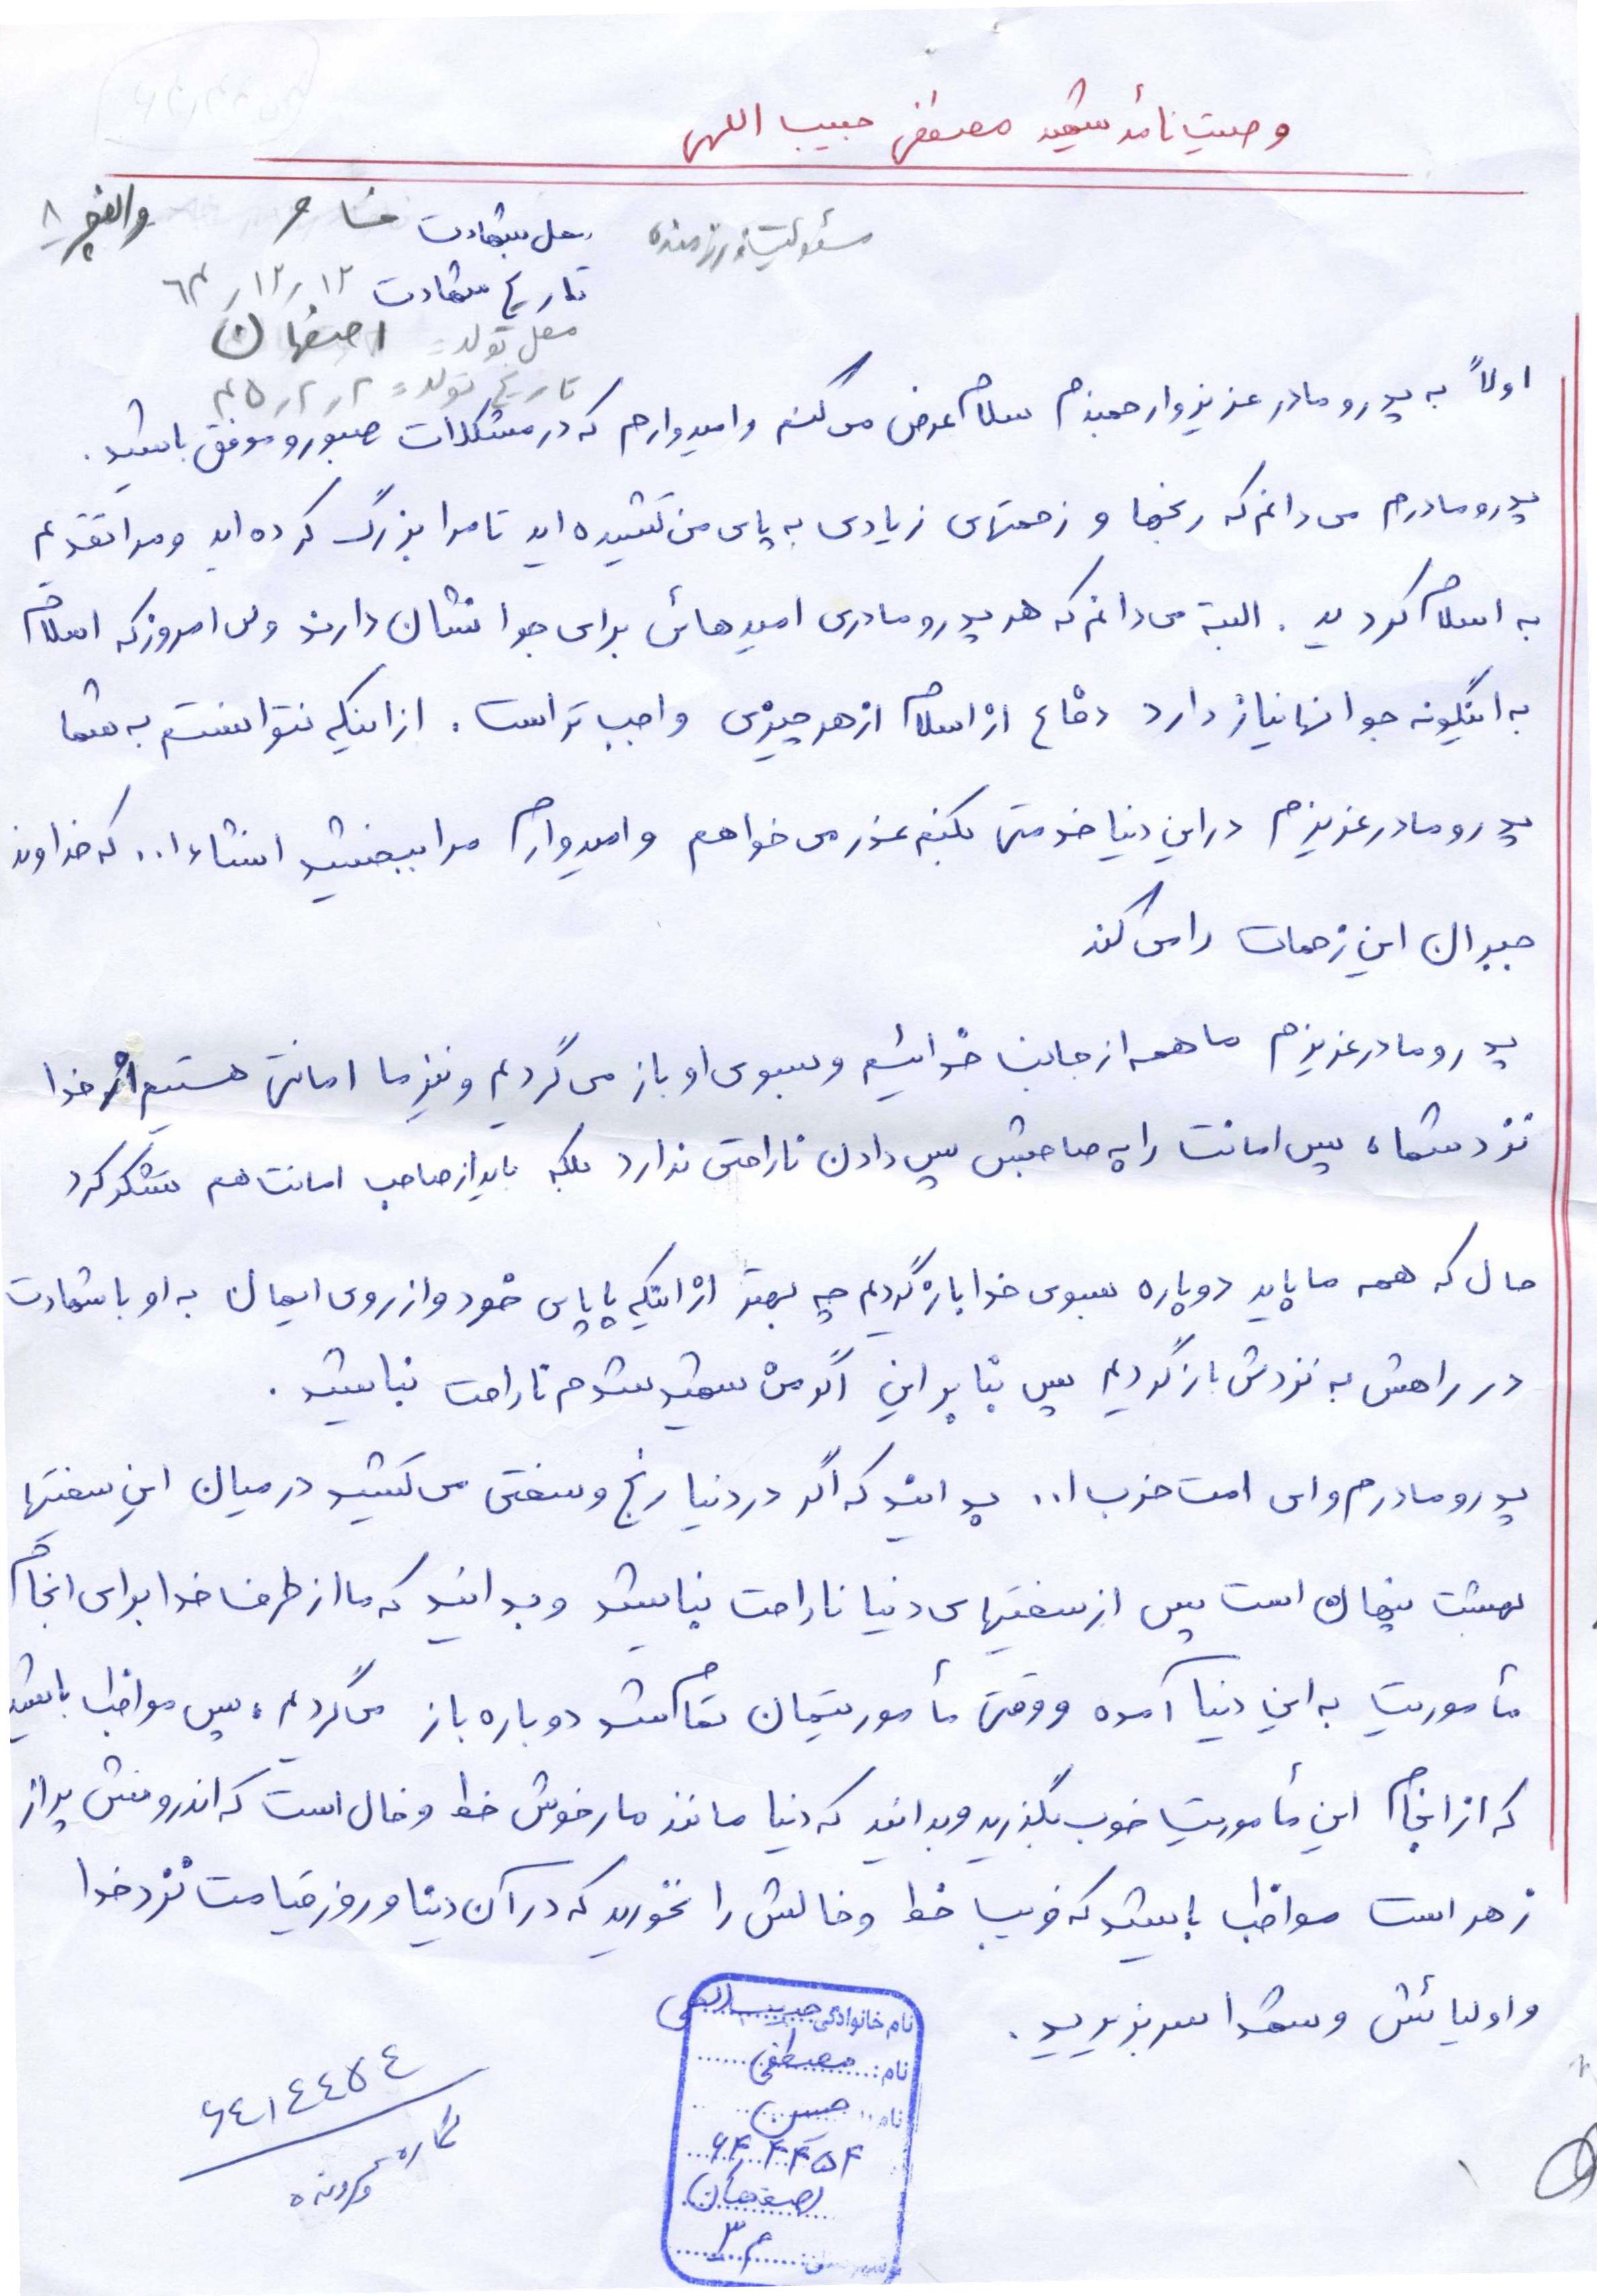 وصیت نامهٔ شهید مصطفی حبیب اللهی
مسئولیت: رزمنده
محل شهادت فاو والفجر ۸
تاریخ شهادت ۱۲/۱۲/۶۴
محل تولد = اصفهان
تاریخ تولد = ۴۵/۲/۲
اولاً به پدر و مادر عزیز و ارجمندم سلام عرض می کنم و امیدوارم که در مشکلات صبور و موفق باشید.
پدر و مادرم می دانم که رنجها و زحمتهای زیادی به پای من کشیده اید تا مرا بزرگ کرده اید و مرا تقدیم
به اسلام کردید. البته می دانم که هر پدر و مادری امیدهائی برای جوانشان دارند ولی امروز که اسلام
به اینگونه جوانها نیاز دارد دفاع از اسلام از هر چیزی واجب تر است. از اینکه نتوانستم به شما
پدر و مادر عزیزم در این دنیا خدمتی بکنم عذر می خواهم و امیدوارم مرا ببخشید انشاءا.. که خداوند
جبران این زحمات را می کند
پدر و مادر عزیزم ما همه از جانب خدائیم و بسوی او باز می گردیم و نیز ما امانتی هستیم از خدا
نزد شما، پس امانت را به صاحبش پس دادن ناراحتی ندارد بلکه باید از صاحب امانت هم تشکر کرد
حال که همه ما باید دوباره بسوی خدا بازگردیم چه بهتر از اینکه با پای خود و از روی ایمان به او با شهادت
در راهش به نزدش بازگردیم پس بنابراین اگر من شهید شدم ناراحت نباشید.
پدر و مادرم و ای امت حزب ا.. بدانید که اگر در دنیا رنج و سختی می کشید در میان این سختیها
بهشت پنهان است پس از سختیهای دنیا ناراحت نباشید و بدانید که ما از طرف خدا برای انجام
مأموریت به این دنیا آمده و وقتی مأموریتمان تمام شد دوباره باز می گردیم، پس مواظب باشید
که از انجام این مأموریت خوب بگذرید و بدانید که دنیا مانند مار خوش خط و خال است که اندرونش پر از
زهر است مواظب باشید که فریب خط و خالش را نخورید که در آن دنیا و روز قیامت نزد خدا
و اولیائش و شهدا سربزیرید.
نام خانوادگی حبیب اللهی
نام: مصطفی
نام حسن
۶۴۴۴۵۴
اصفهان
م ۳
۶٤۱٤٤٥٤
شماره پرونده